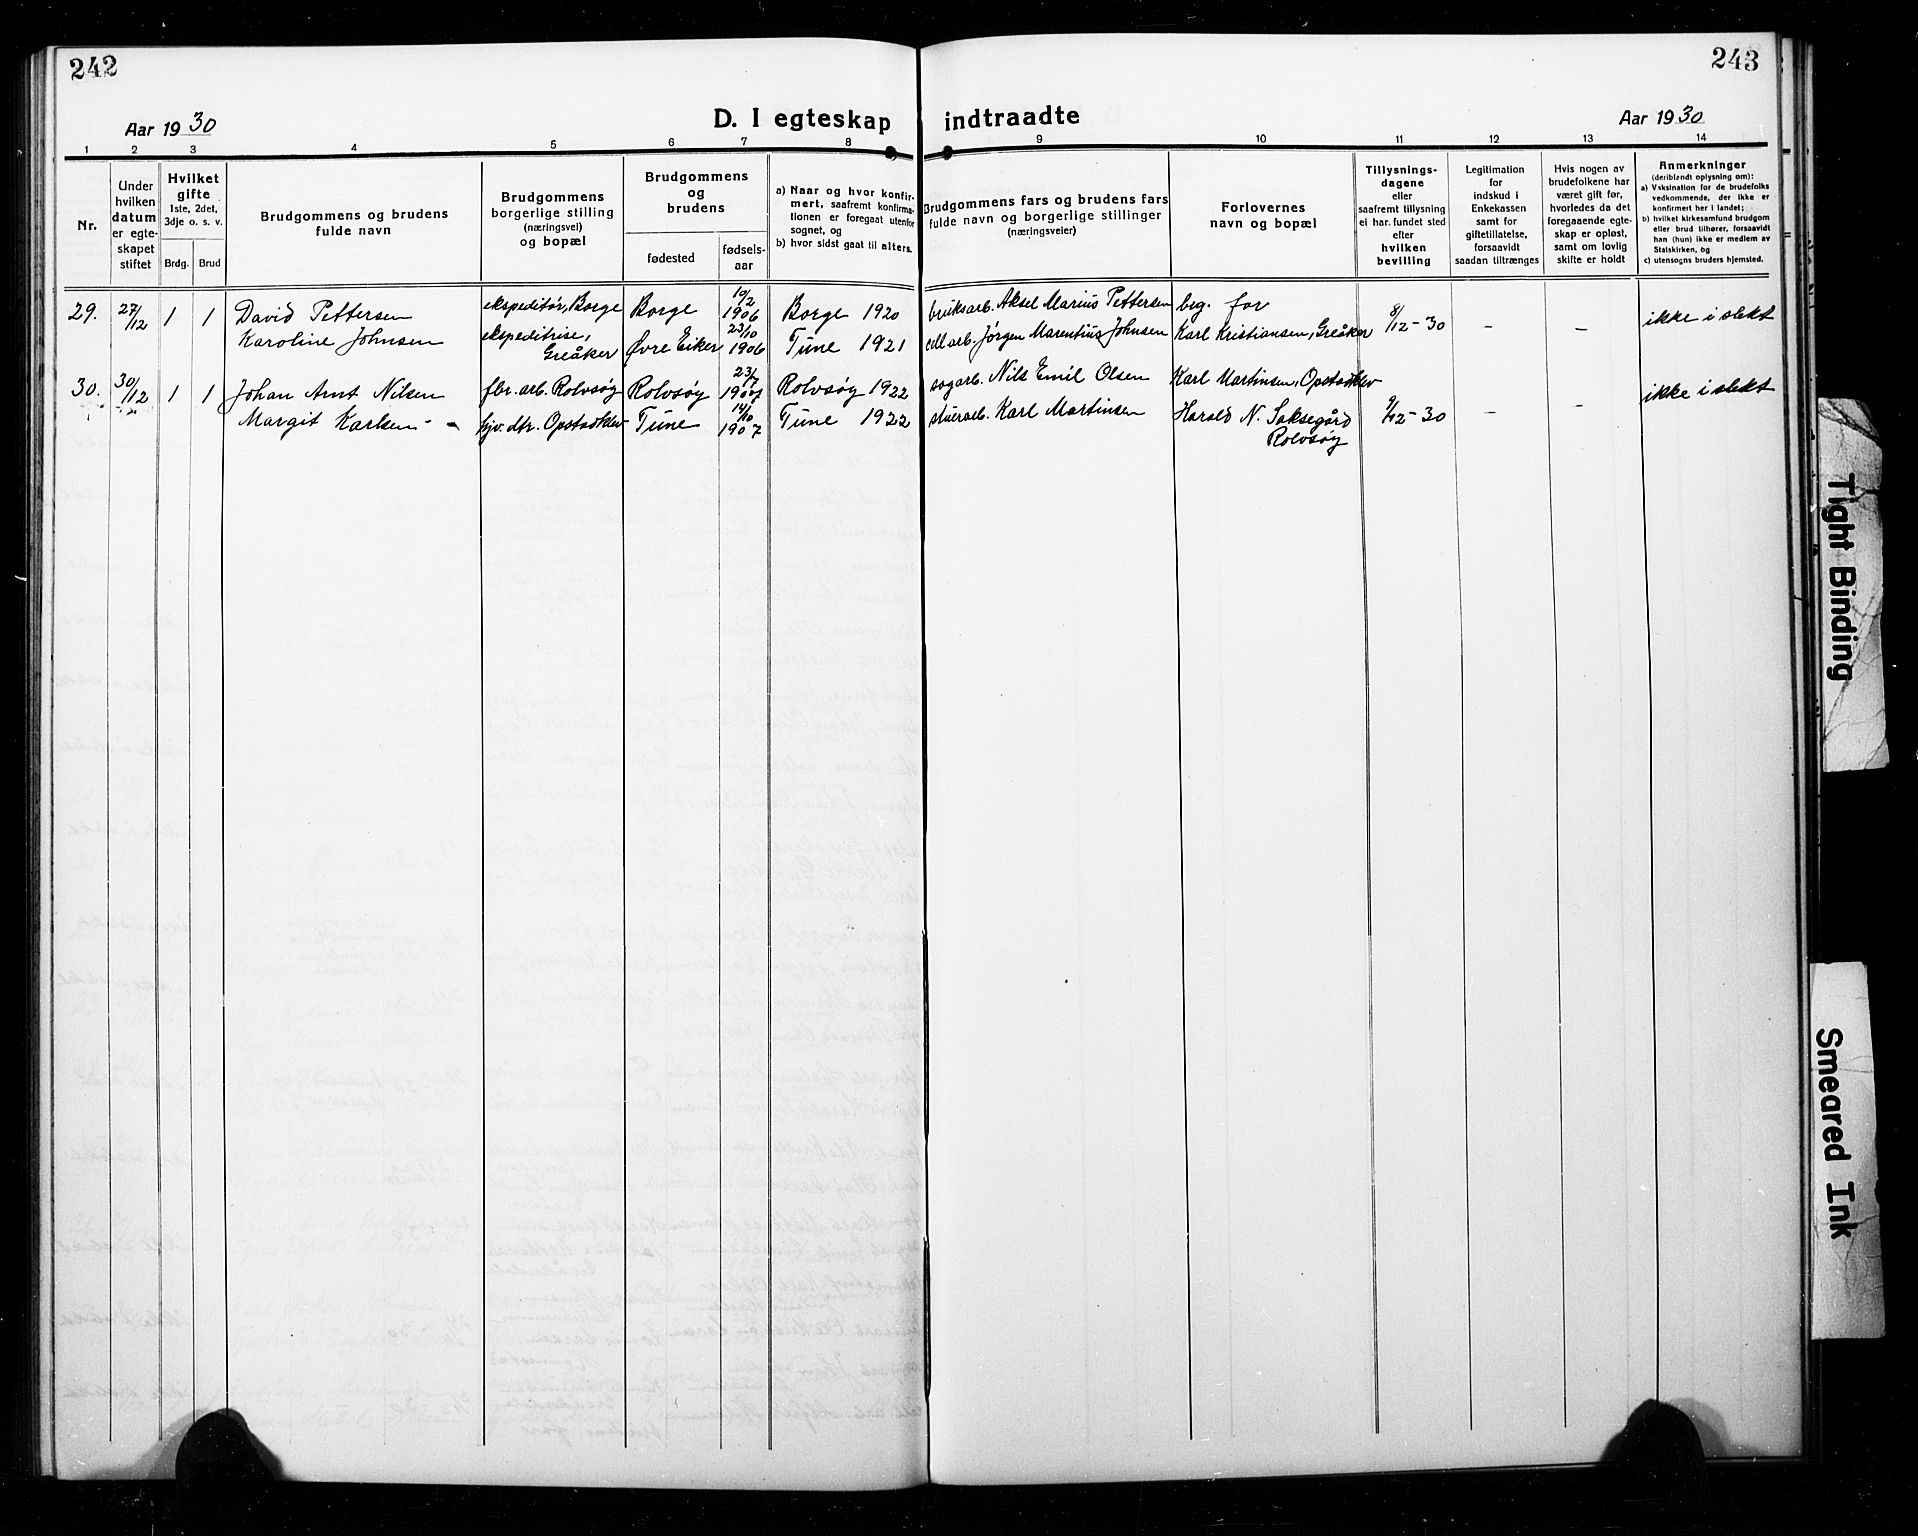 242
243
Aar 1930
D. I egteskap indtraadte
Aar 1930
1 2 3 4 5 6 7 8 9 10 11 12 13 14
Nr.
Under hvilken datum er egteskapet stiftet
Hvilket gifte
1ste, 2det, 3dje o. s. v.
Brdg. Brud
Brudgommens og brudens fulde navn
Brudgommens borgerlige stilling (næringsvei) og bopæl
Brudgommens og brudens
fødested
fødselsaar
a) Naar og hvor konfirmert, saafremt konfirmationen er foregaat utenfor sognet, og
b) hvor sidst gaat til alters.
Brudgommens fars og brudens fars fulde navn og borgerlige stillinger
(næringsveier)
Forlovernes navn og bopæl
Tillysningsdagene eller saafremt tillysning ei har fundet sted efter hvilken bevilling
Legitimation for indskud i Enkekassen samt for giftetillatelse, forsaavidt saadan tiltrænges
Hvis nogen av brudefolkene har været gift før, hvorledes da det foregaaende egteskap er opløst, samt om lovlig skifte er holdt
Anmerkninger
(deriblendt oplysning om):
a) Vaksination for de brudefolks vedkommende, der ikke er konfirmert her i landet;
b) hvilket kirkesamfund brudgom eller brud tilhører, forsaavidt han (hun) ikke er medlem av Statskirken, og
c) utensogns bruders hjemsted.
29. 27/12 1 1 David Pettersen ekspeditør, Borge Borge 19/2 1906 Borge 1920 bruksarb. Aksel Marius Pettersen beg. for 8/12-30 – – ikke i slekt
Karoline Johnsen ekspeditrise, Greåker Øvre Eiker 23/10 1906 Tune 1921 cell.arb. Jørgen Marentius Johnsen Karl Kristiansen, Greåker
30. 30/12 1 1 Johan Arnt Nilsen fbr. arb. Rolvsøy Rolvsøy 23/7 1907 Rolvsøy 1922 sagarb. Nils Emil Olsen Karl Martinsen, Opstadklev 9/12-30 – – ikke i slekt
Margit Karlsen - hjv. dtr. Opstadklev Tune 14/10 1907 Tune 1922 stuerarb. Karl Martinsen Harald N. Saksegård
Rolvsøy
Tight Binding
Smeared Ink